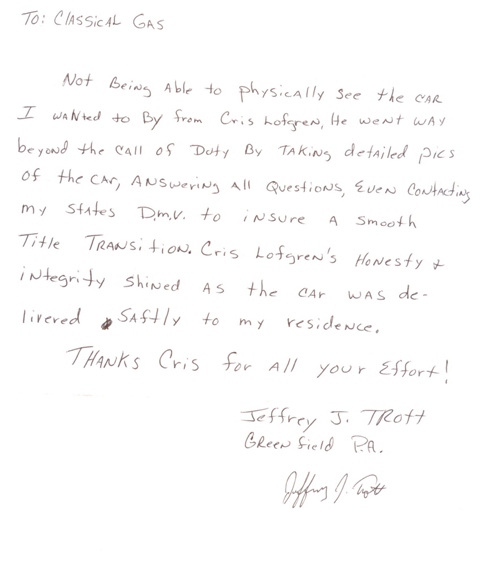 To: Classical Gas
Not Being Able to physically see the car
I wanted to By from Cris Lofgren, He went way
beyond the call of Duty By Taking detailed pics
of the car, Answering All Questions, Even Contacting
my States D.m.v. to insure a smooth
Title Transition. Cris Lofgren's Honesty &
integrity shined As the car was de-
livered saftly to my residence.
Thanks Cris for All your Effort!
Jeffrey J. Trott
Greenfield P.A.
Jeffrey J. Trott